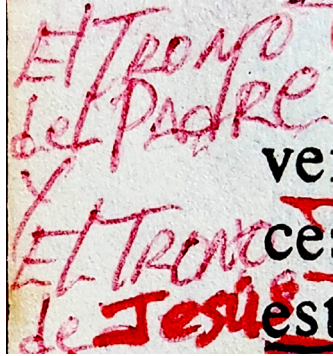 El Trono
del Padre
Y
El Trono
de Jesús